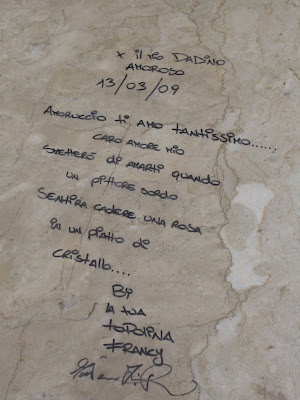 x il mio DADINO
AMOROSO
13/03/09
AMORUCCIO ti AMO tANtISSIMO......
CARO AMORE MIO
SMEtteRÒ di AMARti QUANDO
UN PittORE SORDO
SENtIRA CADERE UNA ROSA
iN UN PiAtto di
CRiStAllo....
Bi
lA tUA
toPOliNA
FRANCY